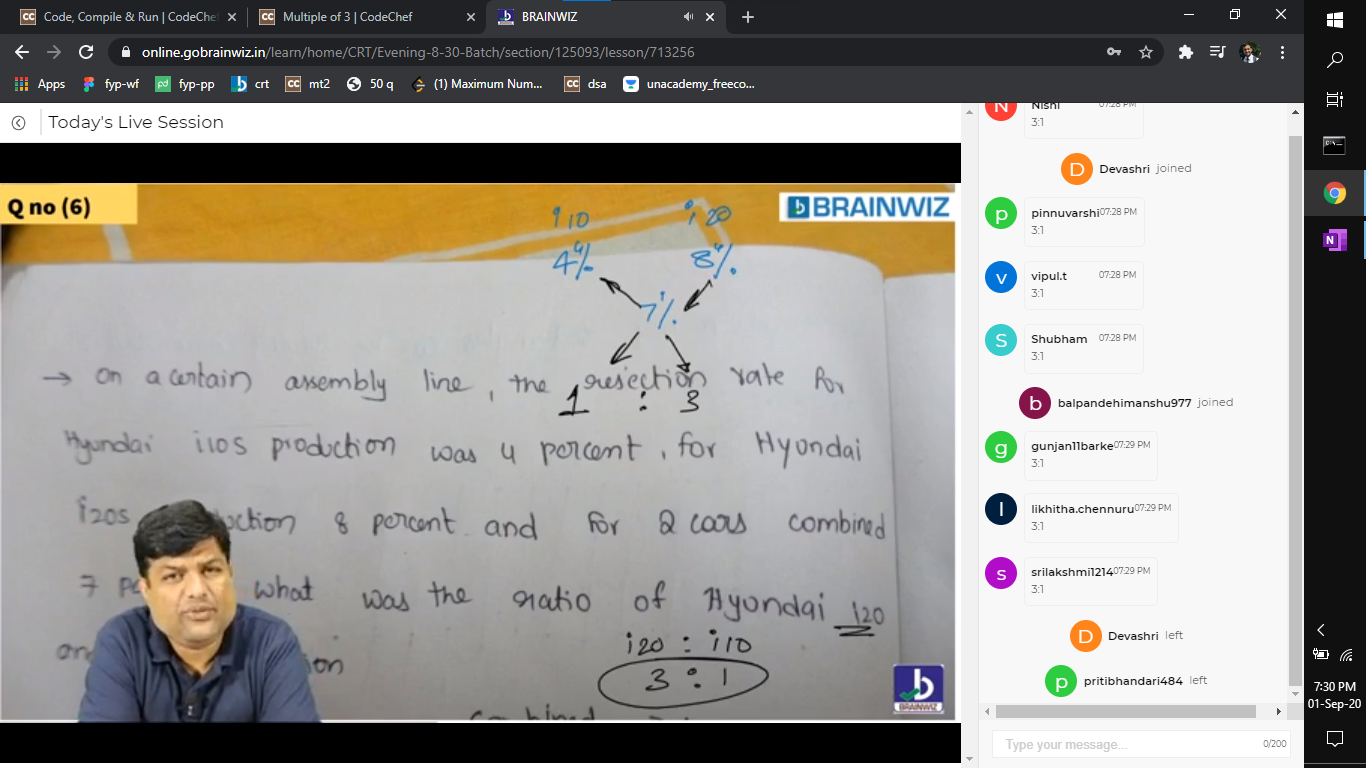 Code, Compile & Run | CodeChef
Multiple of 3 | CodeChef
BRAINWIZ
online.gobrainwiz.in/learn/home/CRT/Evening-8-30-Batch/section/125093/lesson/713256
Apps
fyp-wf
fyp-pp
crt
mt2
50 q
(1) Maximum Num...
dsa
unacademy_freeco...
Today's Live Session
Q no (6)
BRAINWIZ
i10 i20
4% 8%
7%
→ on a certain assembly line, the rejection rate for
1 : 3
Hyundai i10s production was 4 percent, for Hyundai
i20s 8 percent and for 2 cars combined
7 what was the ratio of Hyundai i20
i20 : i10
3 : 1
combined
Nishi 07:28 PM
3:1
Devashri joined
pinnuvarshi 07:28 PM
3:1
vipul.t 07:28 PM
3:1
Shubham 07:28 PM
3:1
balpandehimanshu977 joined
gunjan11barke 07:29 PM
3:1
likhitha.chennuru 07:29 PM
3:1
srilakshmi1214 07:29 PM
3:1
Devashri left
pritibhandari484 left
Type your message... 0/200
7:30 PM
01-Sep-20